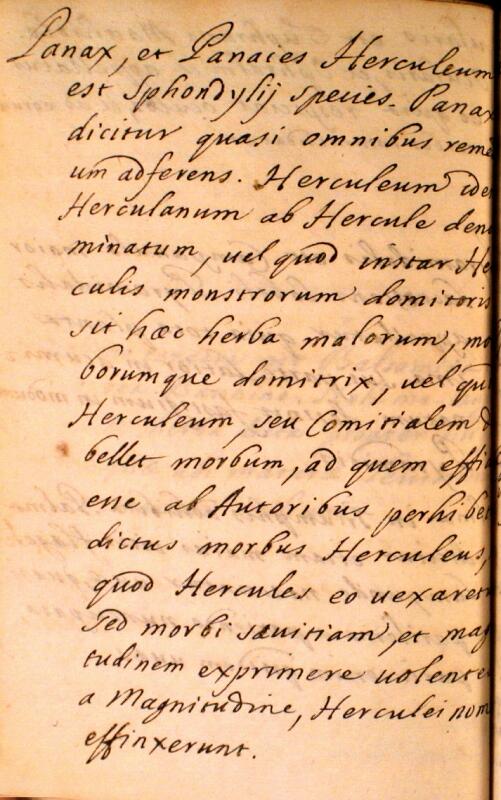 Panax, et Panaces Herculeum
est Sphondylij species. Panax
dicitur quasi omnibus reme
um adferens. Herculeum ide
Herculanum ab Hercule deno
minatum, uel quod instar He
culis monstrorum domitoris
sit hæc herba malorum, mo
borumque domitrix, uel qu
Herculeum, seu Comitialem d
bellet morbum, ad quem effi
esse ab Autoribus perhibet
dictus morbus Herculeus,
quod Hercules eo uexaretu
sed morbi sæuitiam, et mag
tudinem exprimere uolente
a Magnitudine, Herculei nom
effinxerunt.